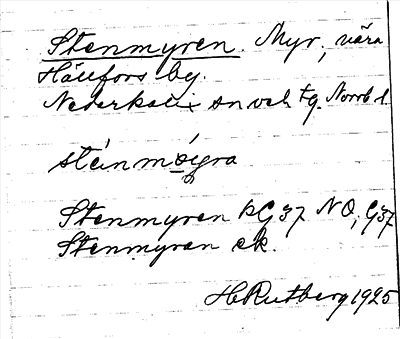 Stenmyren. Myr, nära
Hällfors by.
Nederkalix sn och tg. Norrb. l.
stéinmòyra
Stenmyren kG37 NO, G37
Stenmyran ek.
H Rutberg 1925